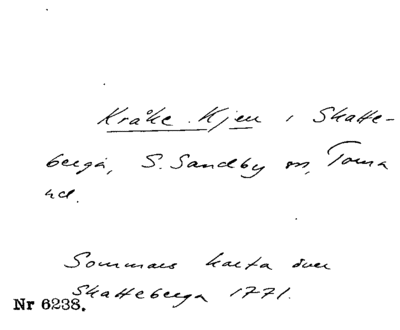 Kråke Kjeu i Skatte-
berga, S. Sandby sn, Torna
hd.
Sommars karta över
Skatteberga 1771.
Nr 6238.